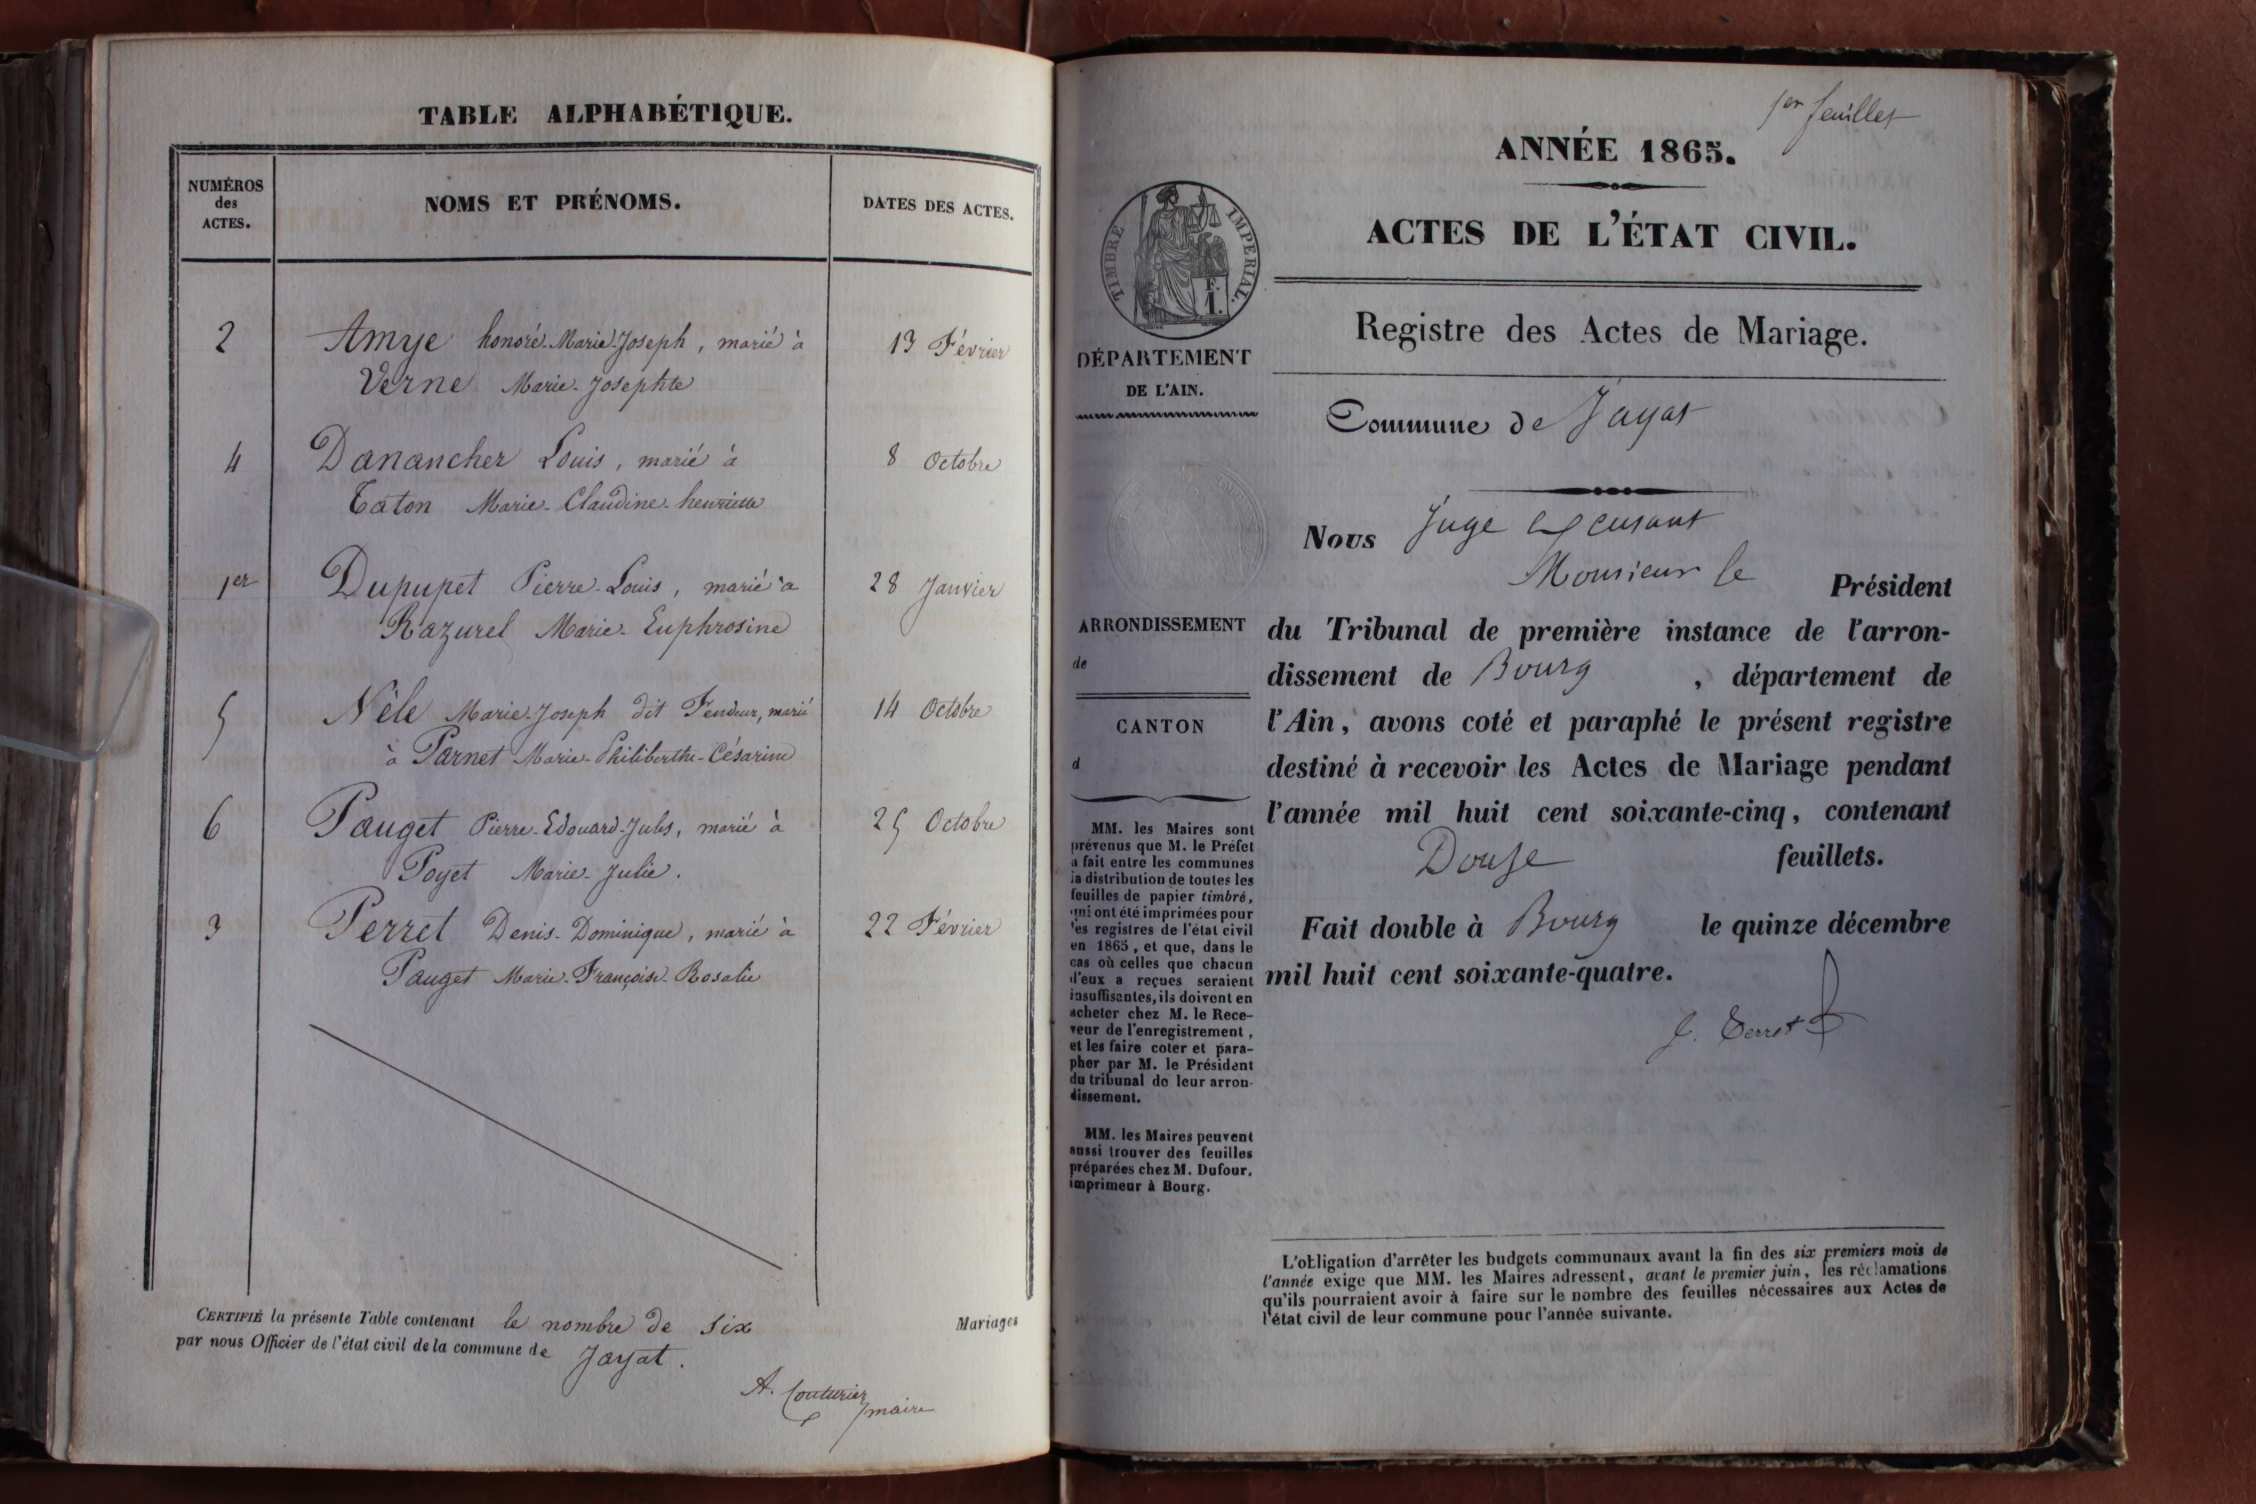 TABLE ALPHABÉTIQUE.
NUMÉROS
des
ACTES.
NOMS ET PRÉNOMS.
DATES DES ACTES.
2 Amye honoré-Marie-Joseph, marié à 13 Février
Verne Marie-Josephte
4 Danancher Louis, marié à 8 Octobre
Caton Marie-Claudine-henriette
1er Dupupet Pierre-Louis, marié à 28 Janvier
Razurel Marie-Euphrosine
5 Nèle Marie-Joseph dit Fendeur, marié 14 Octobre
à Parnet Marie-Philiberthe-Césarine
6 Pauget Pierre-Edouard-Jules, marié à 25 Octobre
Poyet Marie-Julie.
3 Perret Denis-Dominique, marié à 22 Février
Pauget Marie-Françoise-Rosalie
CERTIFIÉ la présente Table contenant le nombre de six Mariages
par nous Officier de l'état civil de la commune de Jayat.
A. Couturier
maire
1er feuillet
ANNÉE 1865.
ACTES DE L'ÉTAT CIVIL.
TIMBRE IMPERIAL.
F.
1.
DÉPARTEMENT
DE L'AIN.
Registre des Actes de Mariage.
Commune de Jayat
Nous Juge
Monsieur le Président
ARRONDISSEMENT
de
CANTON
d
du Tribunal de première instance de l'arron-
dissement de Bourg, département de
l'Ain, avons coté et paraphé le présent registre
destiné à recevoir les Actes de Mariage pendant
l'année mil huit cent soixante-cinq, contenant
Douze feuillets.
Fait double à Bourg le quinze décembre
mil huit cent soixante-quatre.
MM. les Maires sont
prévenus que M. le Préfet
a fait entre les communes
la distribution de toutes les
feuilles de papier timbré,
qui ont été imprimées pour
les registres de l'état civil
en 1865, et que, dans le
cas où celles que chacun
d'eux a reçues seraient
insuffisantes, ils doivent en
acheter chez M. le Rece-
veur de l'enregistrement,
et les faire coter et para-
pher par M. le Président
du tribunal de leur arron-
dissement.
MM. les Maires peuvent
aussi trouver des feuilles
préparées chez M. Dufour,
imprimeur à Bourg.
L'obligation d'arrêter les budgets communaux avant la fin des six premiers mois de
l'année exige que MM. les Maires adressent, avant le premier juin, les réclamations
qu'ils pourraient avoir à faire sur le nombre des feuilles nécessaires aux Actes de
l'état civil de leur commune pour l'année suivante.